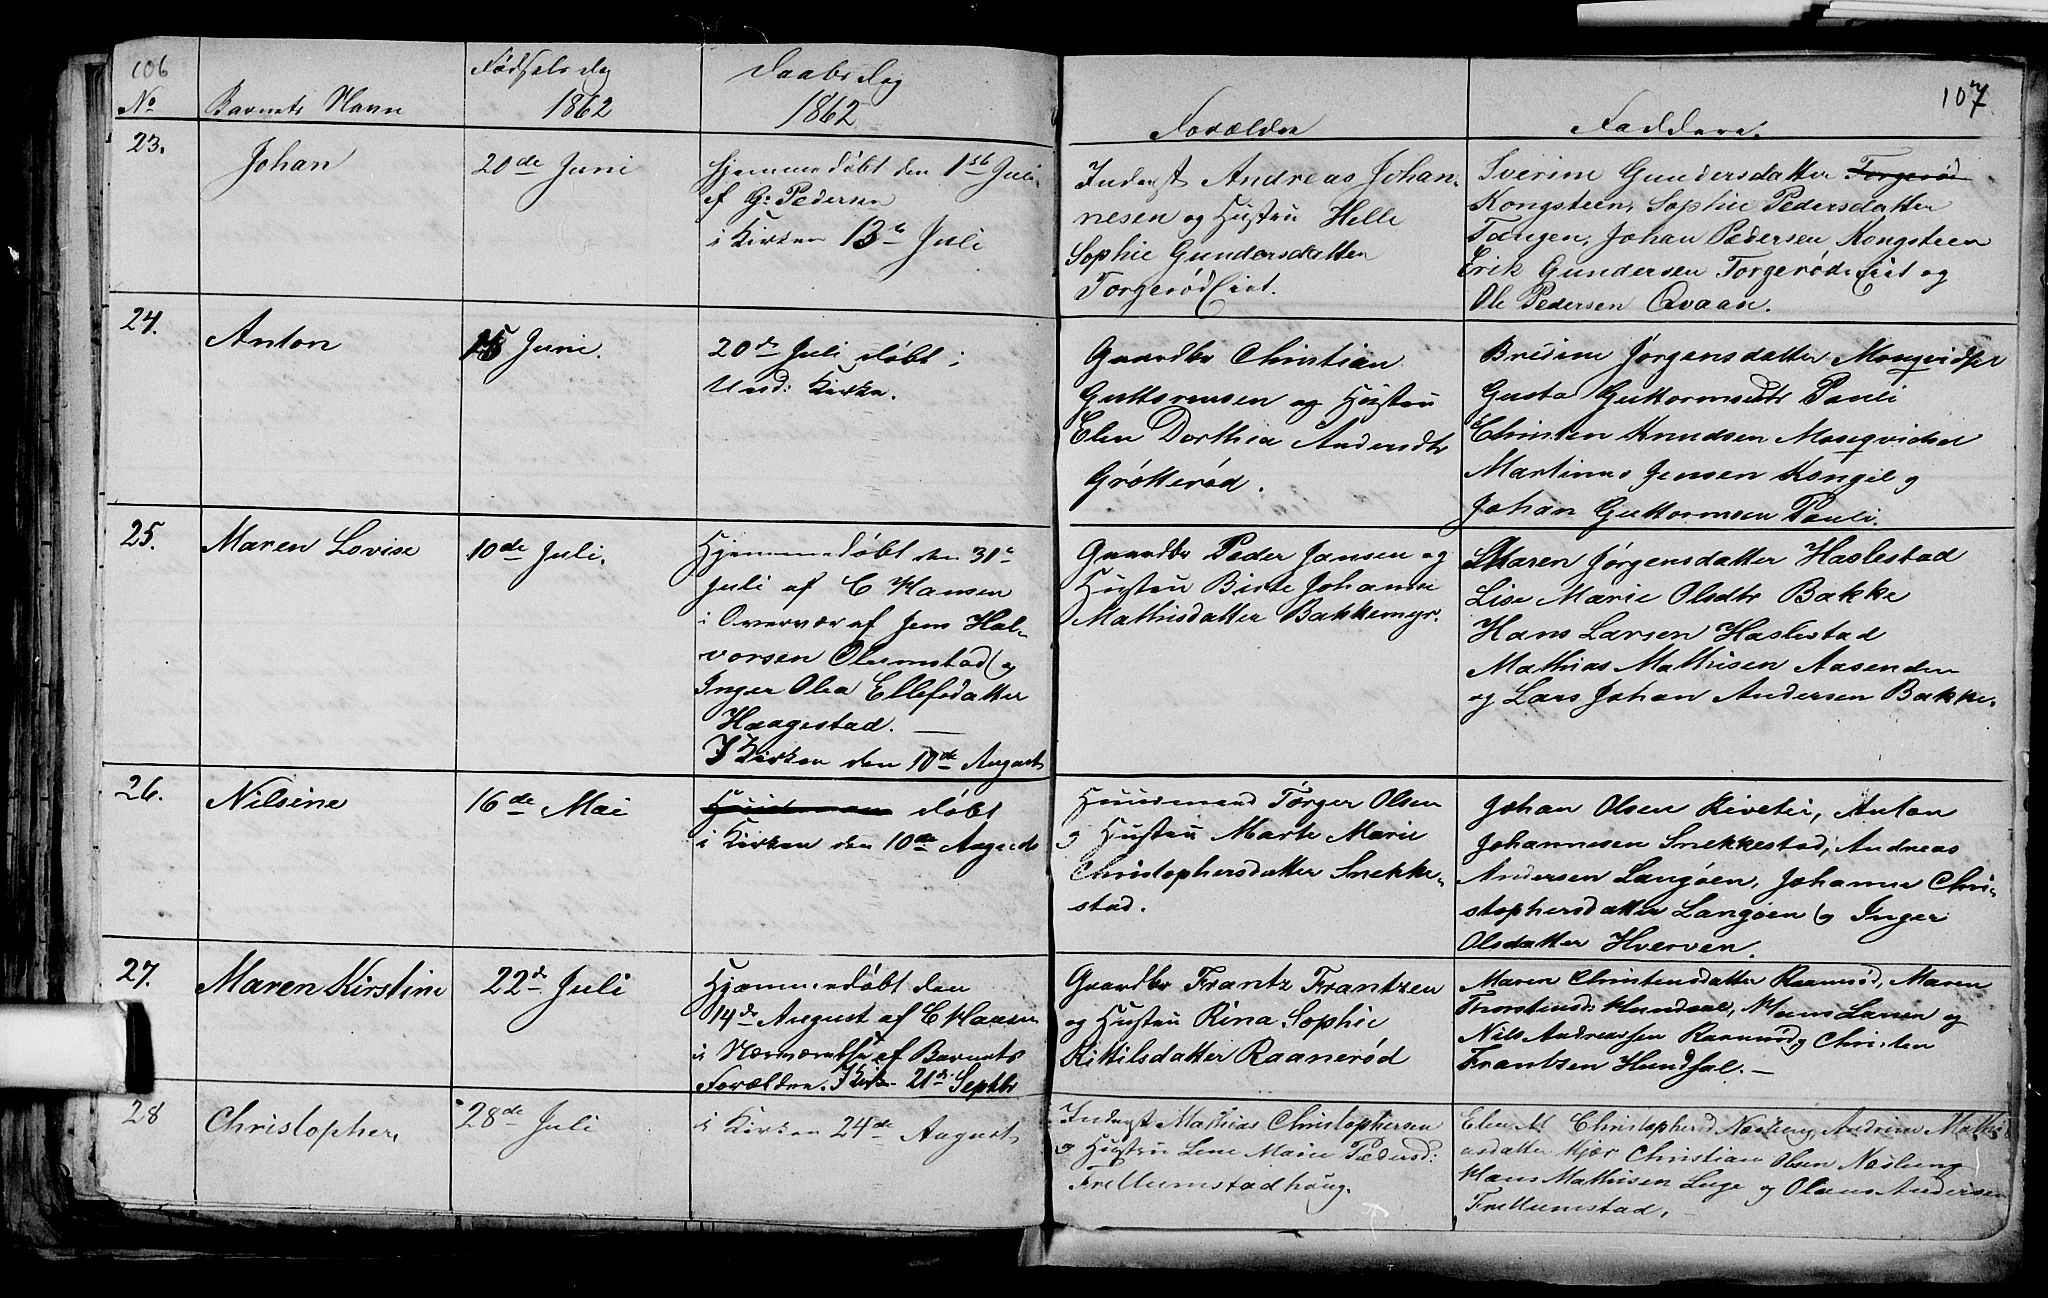 106
107
No
Barnets Navn
Fødsels Dag
1862
Daabs Dag
1862
Forældre
Faddere.
23.
Johan
20de Juni
Hjemmedøbt den 1ste Juli
af G: Pedersen
i Kirken 13de Juli
Inderst Andreas Johan-
nesen og Hustru Helle
Sophie Gundersdatter
Torgerød Eiet.
Sverine Gundersdatter Torgerød
Kongsteen, Sophie Pedersdatter
Tangen, Johan Pedersen Kongsteen
Erik Gundersen Torgerød Eiet og
Ole Pedersen Qvaan.
24.
Anton
Juni.
20de Juli døbt i
Und: Kirke.
Gaardbr Christian
Guttormsen og Hustru
Elen Dorthea Andersdtr
Grøtterød.
Bredine Jørgensdatter
Gusta Guttormsdtr Pauli
Christen Knudsen
Martinus Jensen Kongel og
Johan Guttormsen Pauli.
25.
Maren Lovise
10de Juli.
Hjemmedøbt den 31te
Juli af C Hansen
i Overvær af Jens Hal-
vorsen Olumstad og
Inger Olea Ellefsdatter
Haagestad.
I Kirken den 10de August
Gaardbr Peder Jansen og
Hustru Birte Johanne
Mathisdatter Bakkemyr.
Maren Jørgensdatter Haslestad
Lise Marie Olsdtr Bakke
Hans Larsen Haslestad
Mathias Mathisen Aasenden
og Lars Johan Andersen Bakke.
26.
Nilsine
16de Mai
Huusman døbt
i Kirken den 10de August
Huusmand Torger Olsen
og Hustru Marte Marie
Christophersdatter Snekke-
stad.
Johan Olsen Rivetei, Anton
Johannesen Snekkestad, Andreas
Andersen Langøen, Johanne Chri-
stophersdatter Langøen og Inger
Olsdatter Hverven.
27.
Maren Kirstine
22de Juli
Hjemmedøbt den
14de August af C Hansen
i Nærværelse af Barnets
Forældre. I Kirken 21de Septbr
Gaardbr Frantz Frantzen
og Hustru Rina Sophie
Kittilsdatter Raanerød
Maren Christensdatter Raanerød, Maren
Thorstensd: Hundsal, Hans Larsen og
Nils Andreassen Raanerød og Christen
Frantzen Hundsal.
28
Christopher
28de Juli
i Kirken 24de August
Inderst Mathias Christophersen
og Hustru Lene Marie Pedersd:
Frellumstadhaug.
Elen M Christophersd Næsteng, Andrine Mathi-
asdatter Kjær Christian Olsen Næsteng
Hans Mathisen Luge og Olaus Andersen
Frellumstad.